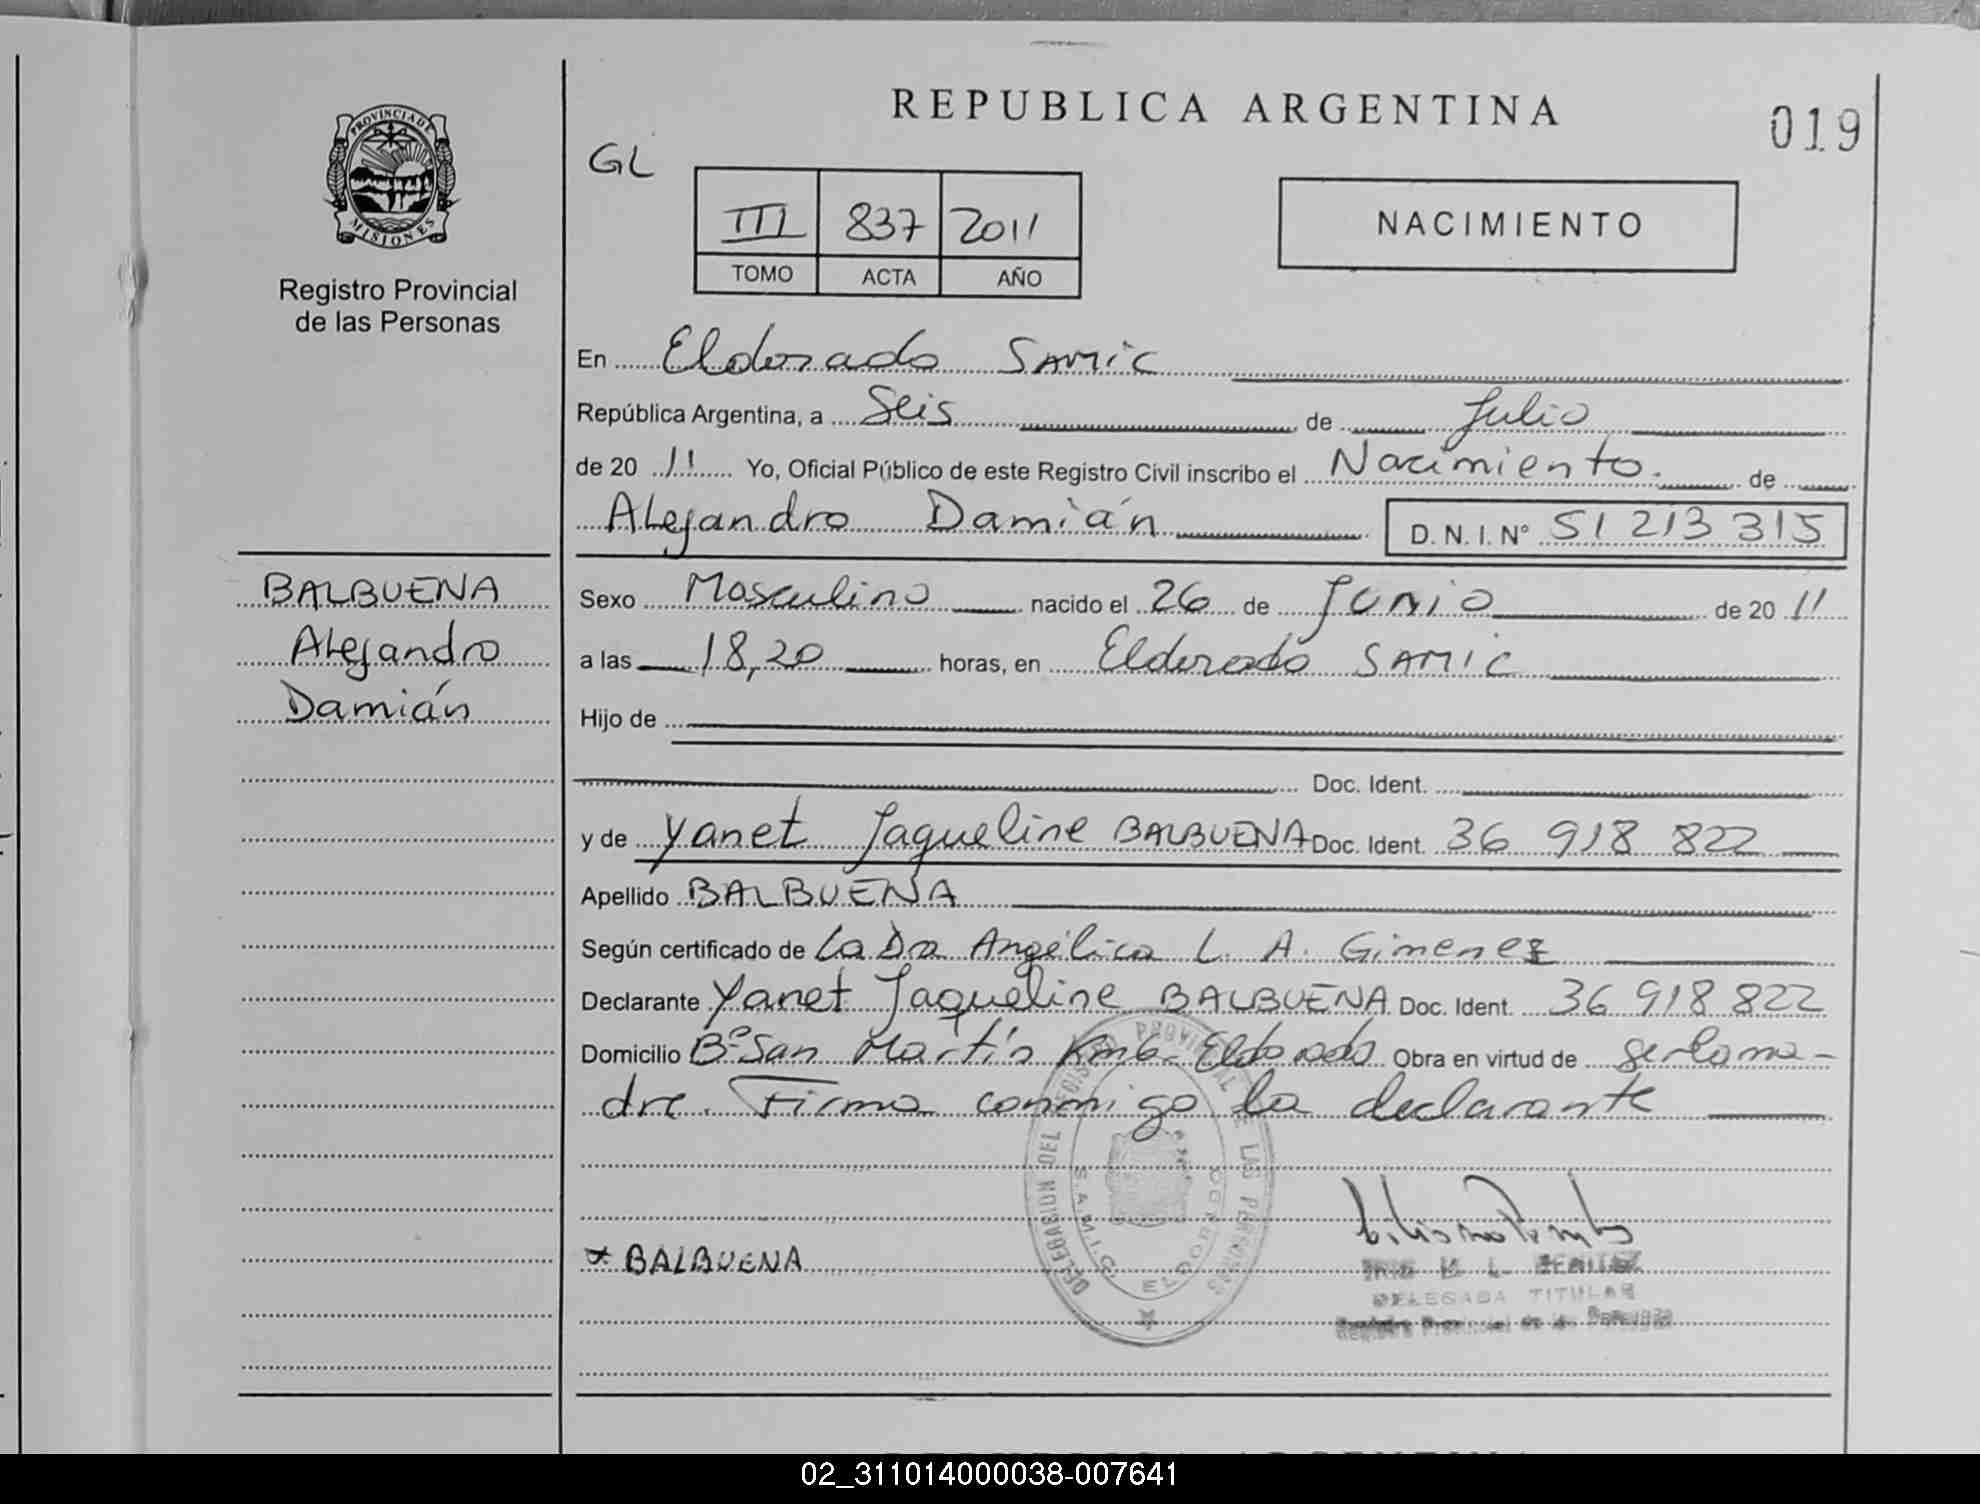 REPUBLICA ARGENTINA
019
PROVINCIA DE
MISIONES
Registro Provincial
de las Personas
GL
III 837 2011
TOMO ACTA AÑO
NACIMIENTO
En Eldorado SAMIC
República Argentina, a Seis de Julio
de 20 11 Yo, Oficial Público de este Registro Civil inscribo el Nacimiento. de
Alejandro Damián D. N. I. Nº 51 213 315
BALBUENA
Alejandro
Damián
Sexo Masculino nacido el 26 de Junio de 20 11
a las 18,20 horas, en Eldorado SAMIC
Hijo de
Doc. Ident.
y de Yanet Jaqueline BALBUENA Doc. Ident. 36 918 822
Apellido BALBUENA
Según certificado de La Dra Angélica L. A. Gimenez
Declarante Yanet Jaqueline BALBUENA Doc. Ident. 36 918 822
Domicilio Bº San Martín Km 6- Eldorado Obra en virtud de ser la ma-
dre. Firma conmigo la declarante
DELEGACION DEL REGISTRO PROVINCIAL DE LAS PERSONAS
S.A.M.I.C. ELDORADO
x BALBUENA
M. L. BENITEZ
DELEGADA TITULAR
Registro Provincial de las Personas
02_311014000038-007641